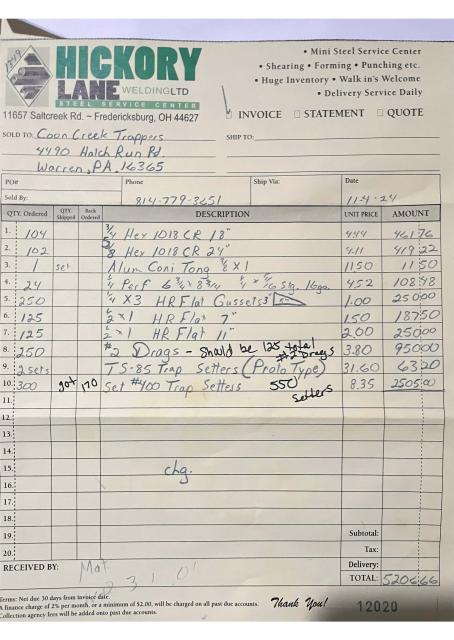 1849
HICKORY
LANE WELDING LTD
STEEL SERVICE CENTER
11657 Saltcreek Rd. ~ Fredericksburg, OH 44627
• Mini Steel Service Center
• Shearing • Forming • Punching etc.
• Huge Inventory • Walk in's Welcome
• Delivery Service Daily
INVOICE STATEMENT QUOTE
SOLD TO: Coon Creek Trappers SHIP TO:
4490 Hatch Run Rd.
Warren, PA. 16365
PO# Phone Ship Via: Date
Sold By: 814-779-3651 11-4-24
QTY. Ordered QTY. Shipped Back Ordered DESCRIPTION UNIT PRICE AMOUNT
1. 104 3/4 Hex 1018 CR 18" 4.44 461 76
2. 102 5/8 Hex 1018 CR 24" 4.11 419 22
3. 1 set Alum Coni Tong X 1 11 50 11 50
4. 24 Perf 16ga. 4.52 108 48
5. 250 1/4 X 3 HR Flat Gussets 3" 1.00 250 00
6. 125 X 1 HR Flat 7" 1.50 187 50
7. 125 X 1 HR Flat 11" 2.00 250 00
8. 250 #2 Drags - should be 125 total #2 Drags 3.80 950 00
9. 2 sets TS-85 Trap Setters (Proto Type) 31.60 63 20
10. 300 got 170 Set #400 Trap Setters 550 setters 8.35 2505 00
11.
12.
13.
14.
15. chg.
16.
17.
18.
19. Subtotal:
20. Tax:
RECEIVED BY: Delivery:
TOTAL: 5206.66
Terms: Net due 30 days from invoice date.
A finance charge of 2% per month, or a minimum of $2.00, will be charged on all past due accounts.
Collection agency fees will be added onto past due accounts.
Thank You! 12020